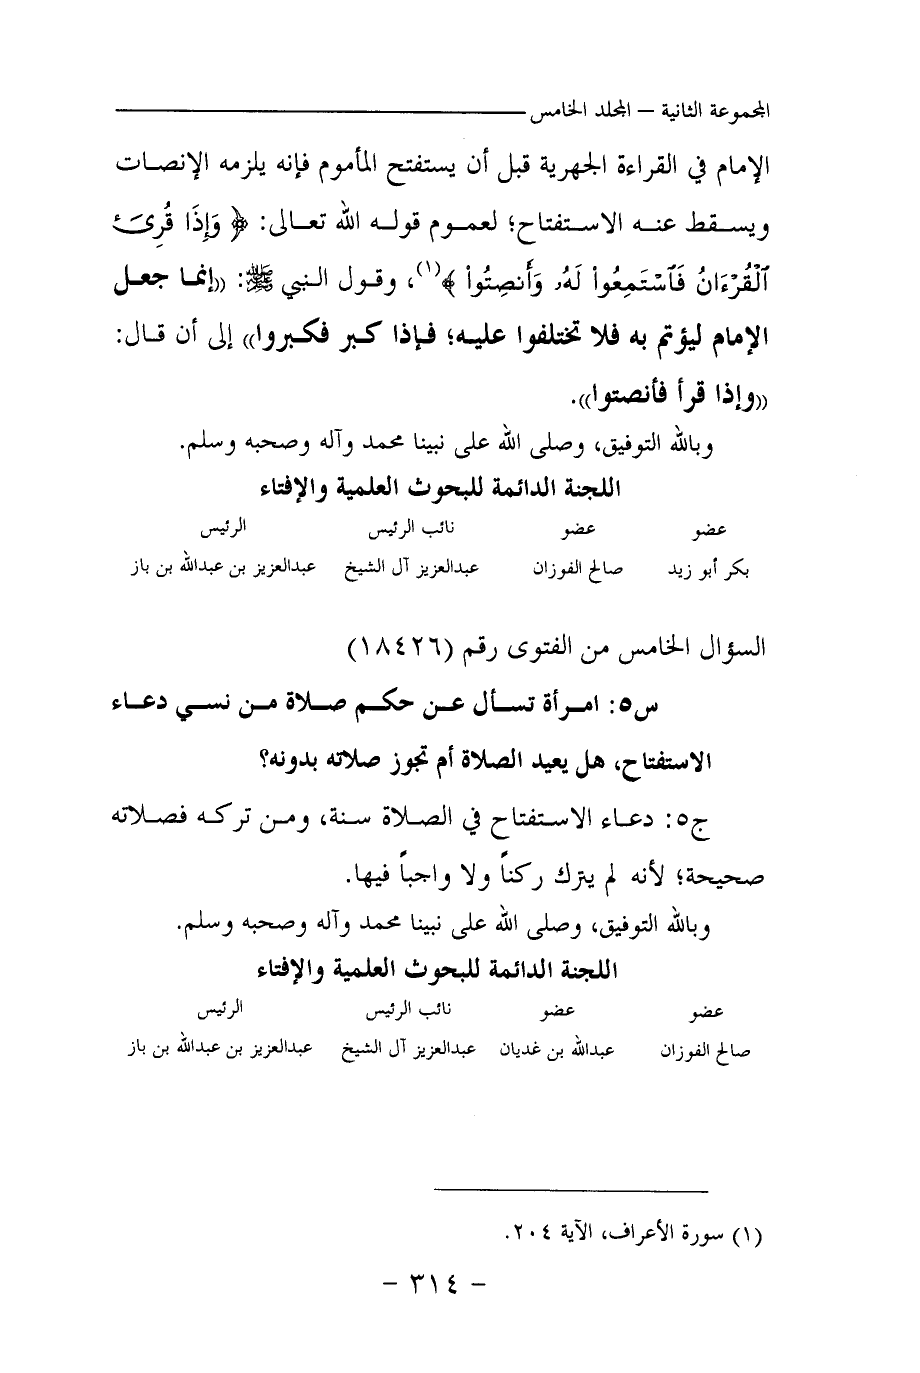 المجموعة الثانية – المجلد الخامس
الإمام في القراءة الجهرية قبل أن يستفتح المأموم فإنه يلزمه الإنصات
ويسقط عنه الاستفتاح؛ لعموم قوله الله تعالى: ﴿ وَإِذَا قُرِئَ
ٱلْقُرْءَانُ فَٱسْتَمِعُوا۟ لَهُۥ وَأَنصِتُوا۟ ﴾(١)، وقول النبي ﷺ: ((إنما جعل
الإمام ليؤتم به فلا تختلفوا عليه؛ فإذا كبر فكبروا)) إلى أن قال:
((وإذا قرأ فأنصتوا)).
وبالله التوفيق، وصلى الله على نبينا محمد وآله وصحبه وسلم.
اللجنة الدائمة للبحوث العلمية والإفتاء
عضو عضو نائب الرئيس الرئيس
بكر أبو زيد صالح الفوزان عبدالعزيز آل الشيخ عبدالعزيز بن عبدالله بن باز
السؤال الخامس من الفتوى رقم (١٨٤٢٦)
س٥: امرأة تسأل عن حكم صلاة من نسي دعاء
الاستفتاح، هل يعيد الصلاة أم تجوز صلاته بدونه؟
ج٥: دعاء الاستفتاح في الصلاة سنة، ومن تركه فصلاته
صحيحة؛ لأنه لم يترك ركناً ولا واجباً فيها.
وبالله التوفيق، وصلى الله على نبينا محمد وآله وصحبه وسلم.
اللجنة الدائمة للبحوث العلمية والإفتاء
عضو عضو نائب الرئيس الرئيس
صالح الفوزان عبدالله بن غديان عبدالعزيز آل الشيخ عبدالعزيز بن عبدالله بن باز
(١) سورة الأعراف، الآية ٢٠٤.
- ٣١٤ -